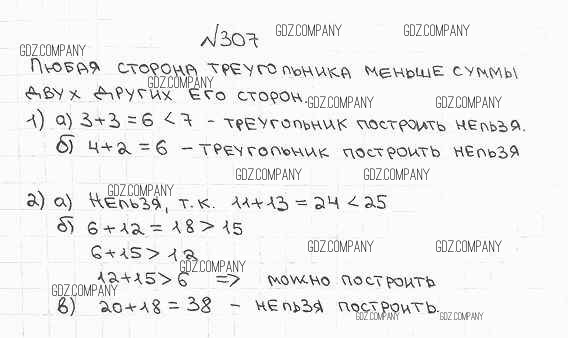 №307
GDZ.COMPANY GDZ.COMPANY
GDZ.COMPANY
Любая сторона треугольника меньше суммы
GDZ.COMPANY
двух других его сторон.
GDZ.COMPANY GDZ.COMPANY
1) а) 3+3=6<7 - треугольник построить нельзя.
б) 4+2=6 - треугольник построить нельзя
GDZ.COMPANY GDZ.COMPANY
GDZ.COMPANY
2) а) Нельзя, т.к. 11+13=24<25
б) 6+12=18>15
6+15>12
GDZ.COMPANY GDZ.COMPANY
GDZ.COMPANY
12+15>6 => можно построить
GDZ.COMPANY
в) 20+18=38 - нельзя построить.
GDZ.COMPANY GDZ.COMPANY